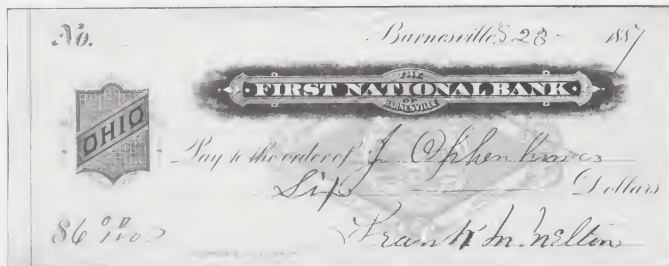 No. Barnesville, 5 28 - 1887
THE
FIRST NATIONAL BANK
OF
BARNESVILLE
OHIO
Pay to the order of J.
Six Dollars
$6 00/100
Frank M. Melton